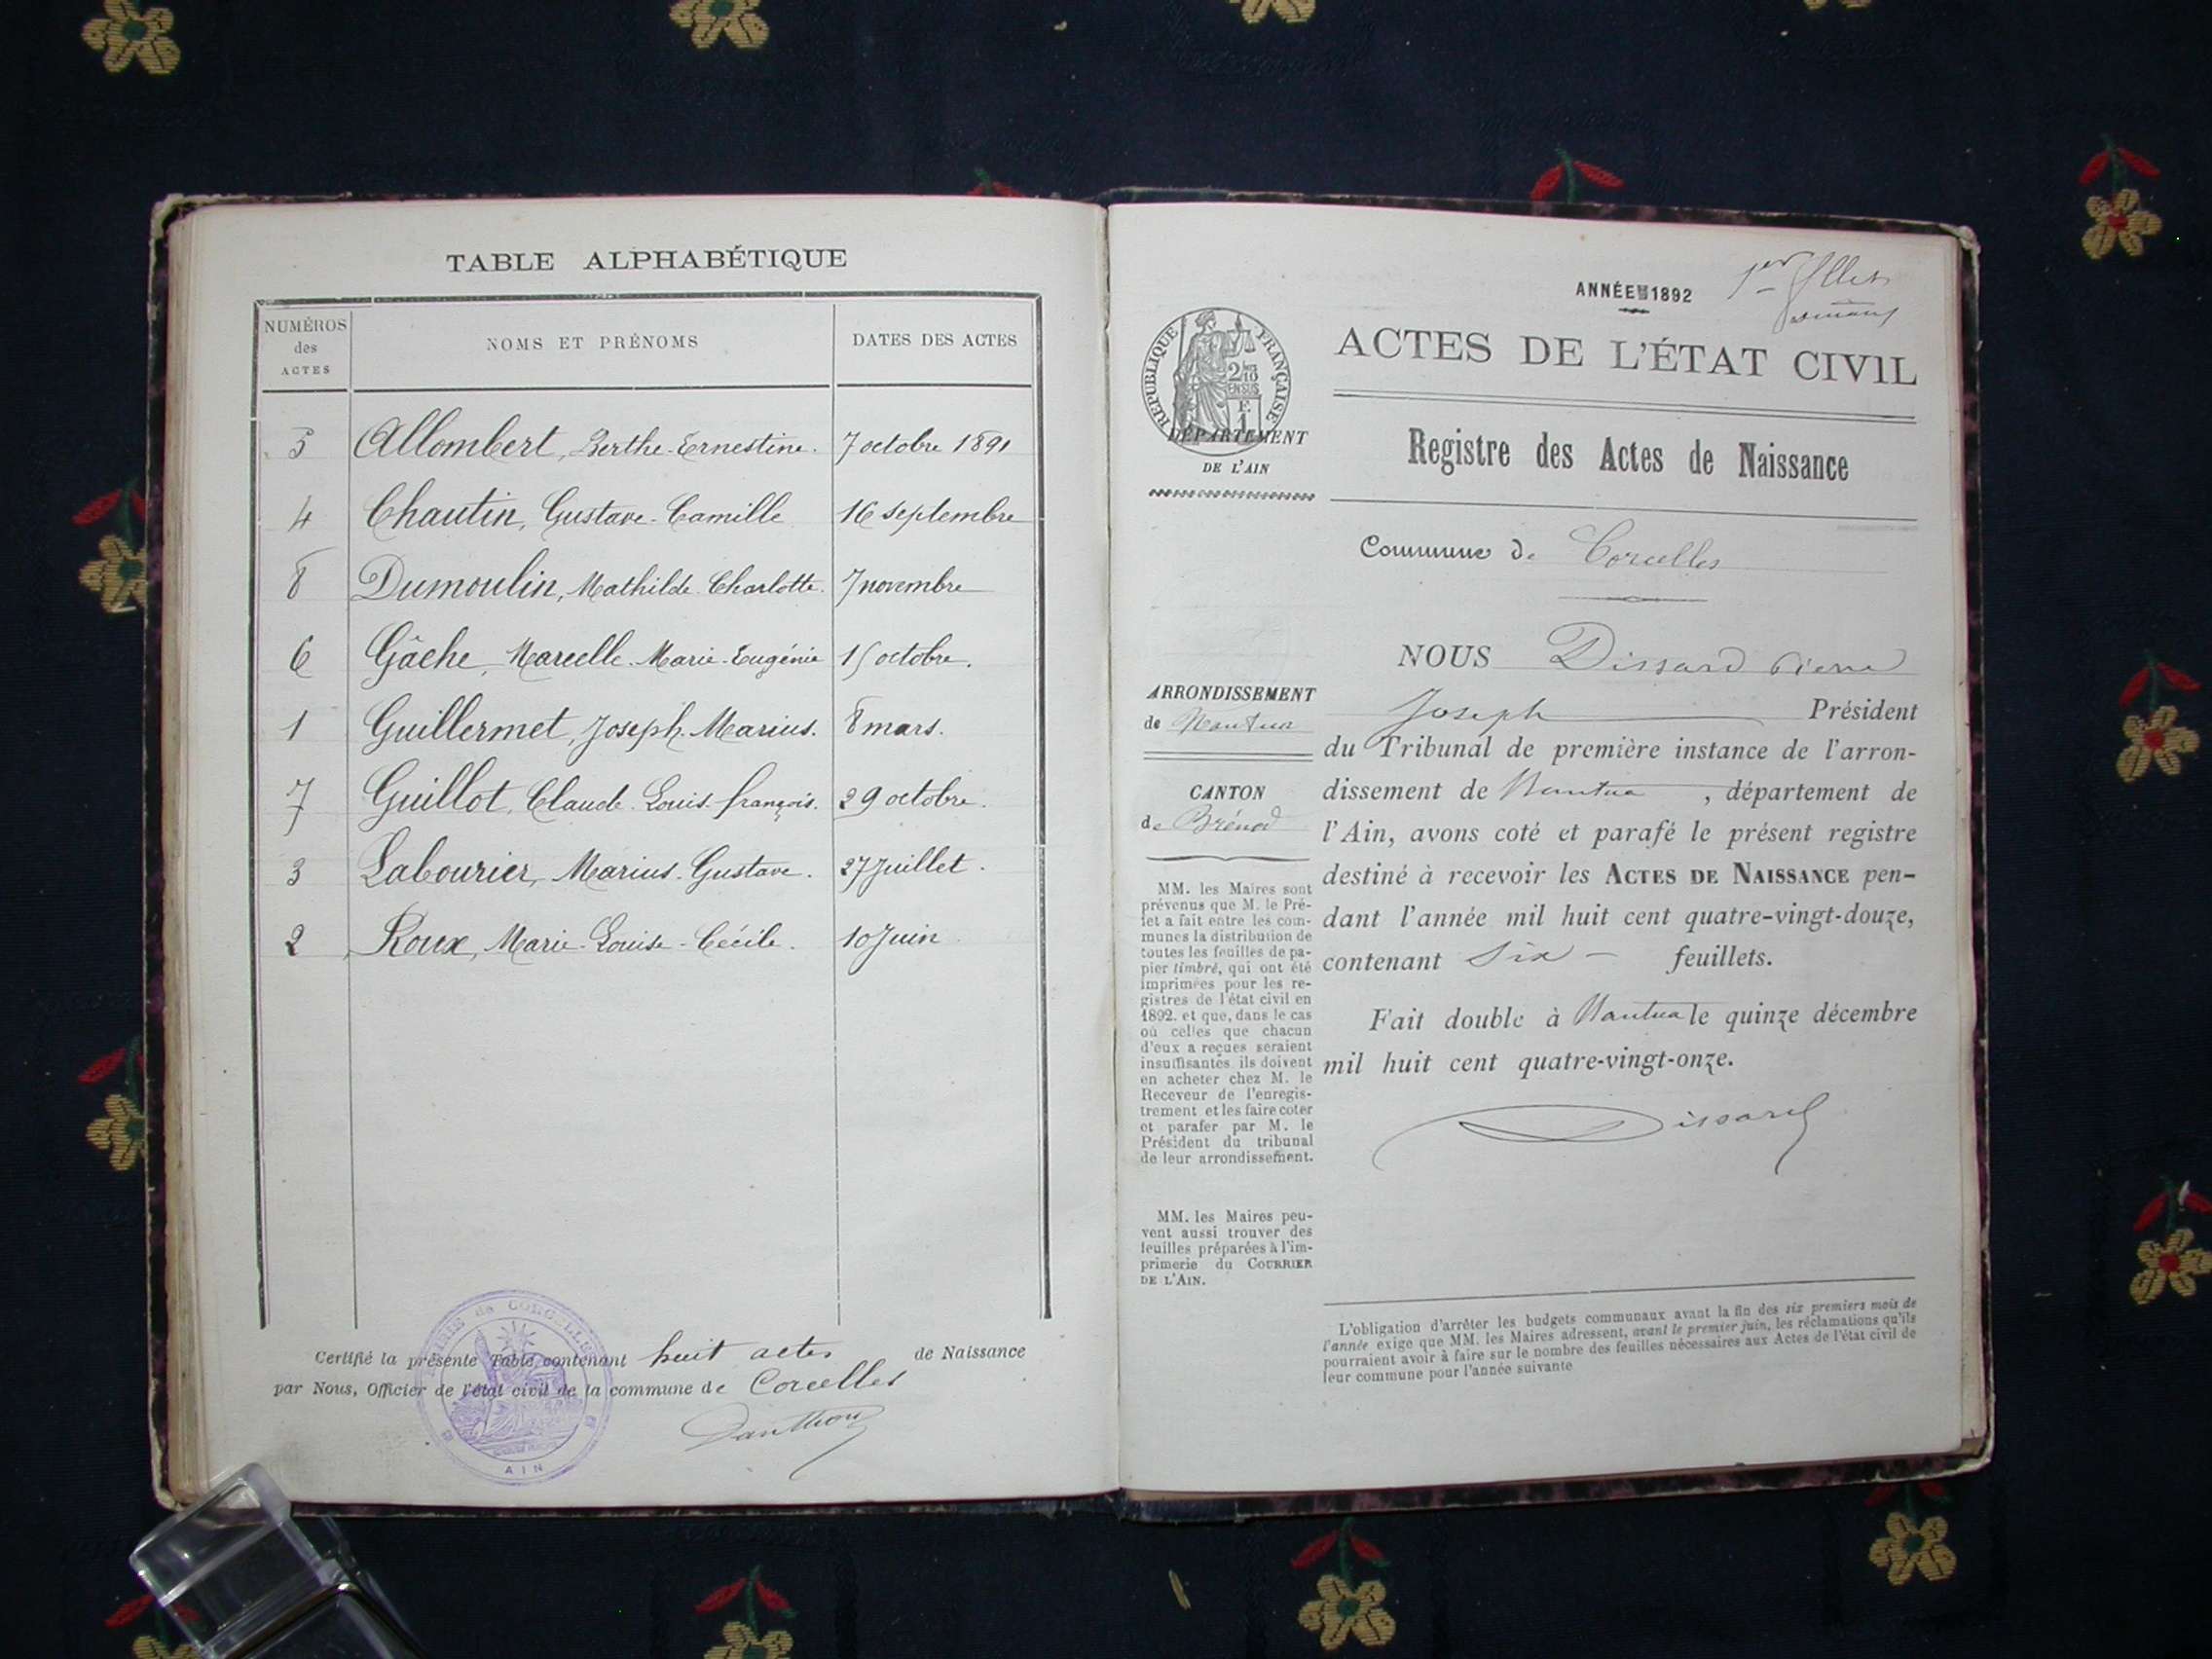 TABLE ALPHABÉTIQUE
NUMÉROS des ACTES
NOMS ET PRÉNOMS
DATES DES ACTES
5 Allombert, Berthe-Ernestine. 7 octobre 1891
4 Chautin, Gustave-Camille 16 septembre
8 Dumoulin, Mathilde Charlotte. 7 novembre
6 Gâche, Marcelle-Marie-Eugénie 15 octobre.
1 Guillermet, Joseph-Marius. 8 mars.
7 Guillot, Claude Louis-françois. 29 octobre.
3 Labourier, Marius-Gustave. 27 Juillet.
2 Roux, Marie-Louise-Cécile. 10 Juin
Certifié la présente Table contenant huit actes de Naissance
par Nous, Officier de l'état civil de la commune de Corcelles
Danthon
MAIRIE de CORCELLES
AIN
ANNÉE 1892
1er
RÉPUBLIQUE FRANÇAISE
2/10
EN SUS
ACTES DE L'ÉTAT CIVIL
DÉPARTEMENT
DE L'AIN
Registre des Actes de Naissance
Commune de Corcelles
NOUS Dissard Pierre
Joseph Président
du Tribunal de première instance de l'arron-
dissement de Nantua, département de
l'Ain, avons coté et parafé le présent registre
destiné à recevoir les ACTES DE NAISSANCE pen-
dant l'année mil huit cent quatre-vingt-douze,
contenant Six feuillets.
Fait double à Nantua le quinze décembre
mil huit cent quatre-vingt-onze.
Dissard
ARRONDISSEMENT
de Nantua
CANTON
de Brénod
MM. les Maires sont
prévenus que M. le Pré-
fet a fait entre les com-
munes la distribution de
toutes les feuilles de pa-
pier timbré, qui ont été
imprimées pour les re-
gistres de l'état civil en
1892. et que, dans le cas
où celles que chacun
d'eux a reçues seraient
insuffisantes ils doivent
en acheter chez M. le
Receveur de l'enregis-
trement et les faire coter
et parafer par M. le
Président du tribunal
de leur arrondissement.
MM. les Maires peu-
vent aussi trouver des
feuilles préparées à l'im-
primerie du COURRIER
DE L'AIN.
L'obligation d'arrêter les budgets communaux avant la fin des six premiers mois de
l'année exige que MM. les Maires adressent, avant le premier juin, les réclamations qu'ils
pourraient avoir à faire sur le nombre des feuilles nécessaires aux Actes de l'état civil de
leur commune pour l'année suivante